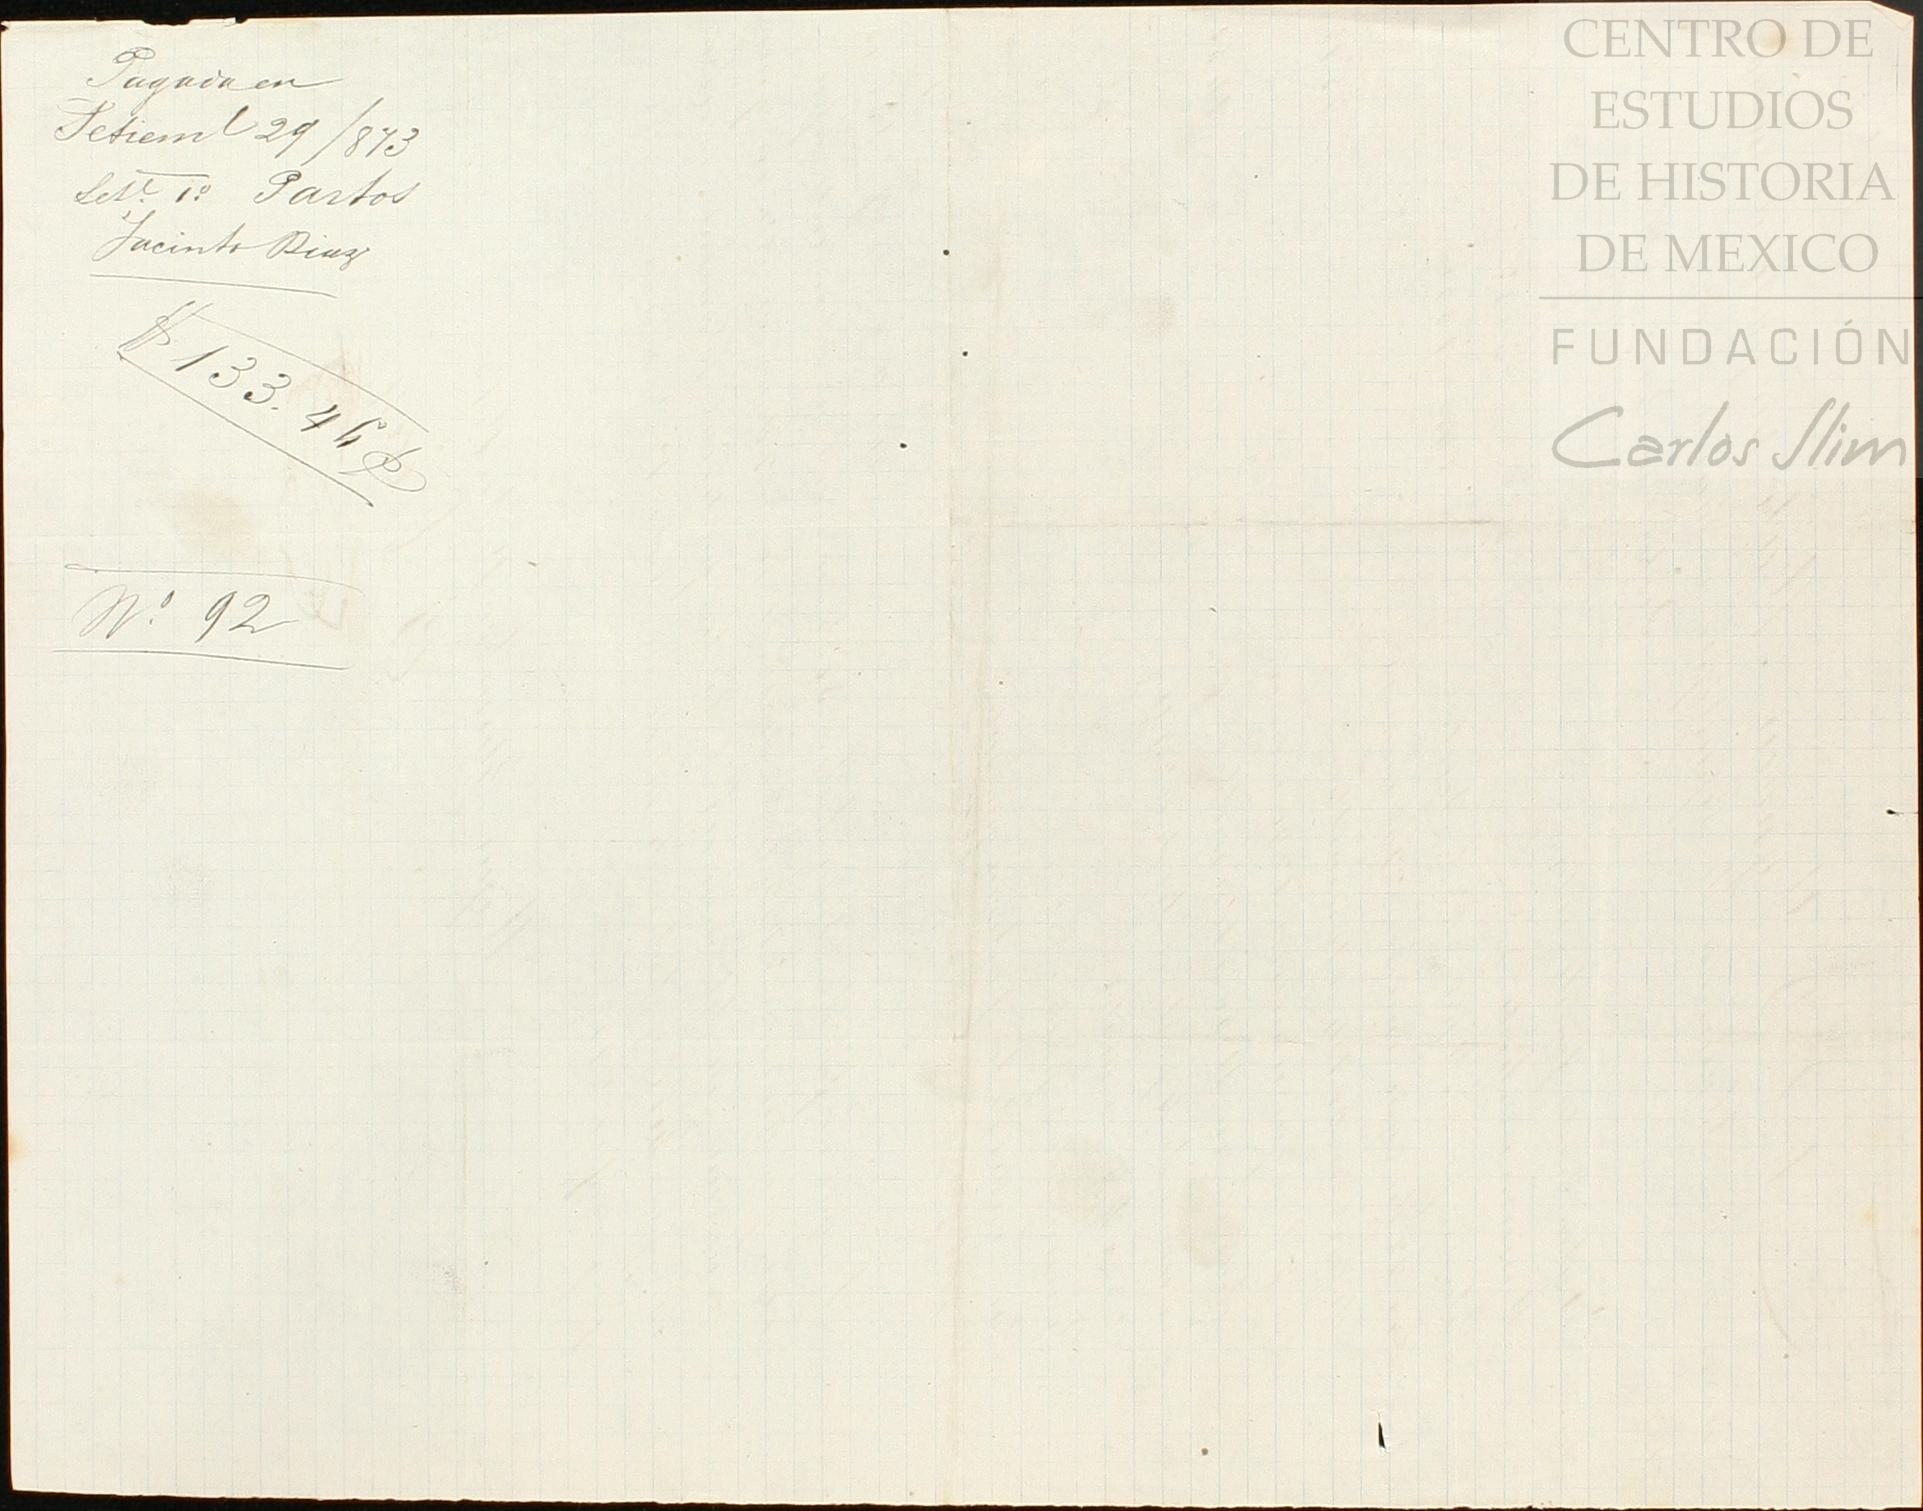 Pagada en
Setiem.e 29/873
Set.e 1º Partos
Jacinto Diaz
$133.46
Nº 92
CENTRO DE
ESTUDIOS
DE HISTORIA
DE MEXICO
FUNDACIÓN
Carlos Slim